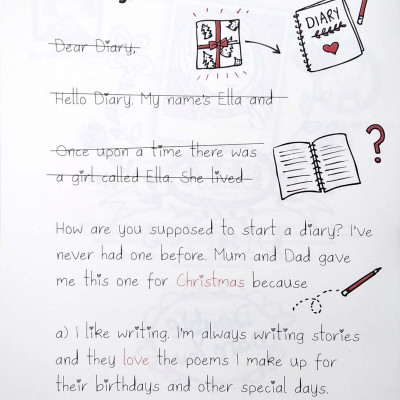 DIARY
Dear Diary,
Hello Diary. My name's Ella and
Once upon a time there was
a girl called Ella. She lived
?
How are you supposed to start a diary? I've
never had one before. Mum and Dad gave
me this one for Christmas because
a) I like writing. I'm always writing stories
and they love the poems I make up for
their birthdays and other special days.